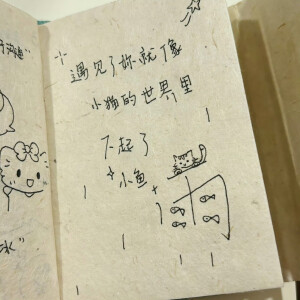 遇见了妳就像
小猫的世界里
下起了
小鱼雨